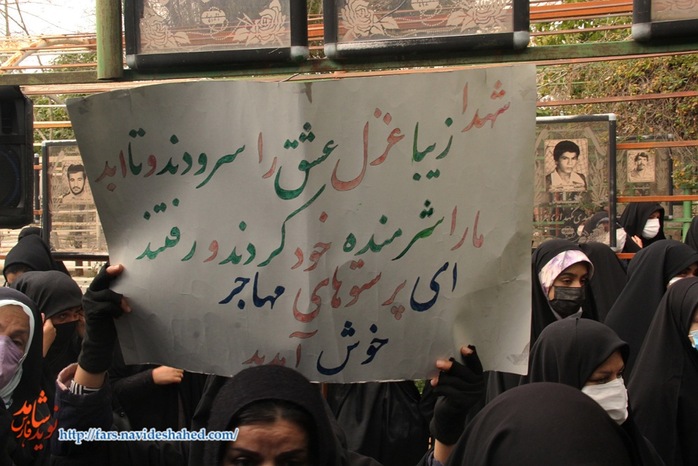 شهدا زیبا غزل عشق را سرودند و تا ابد
مارا شرمنده خود کردند و رفتند
ای پرستوهای مهاجر
خوش آمدید
نوید شاهد فارس
http://fars.navideshahed.com/